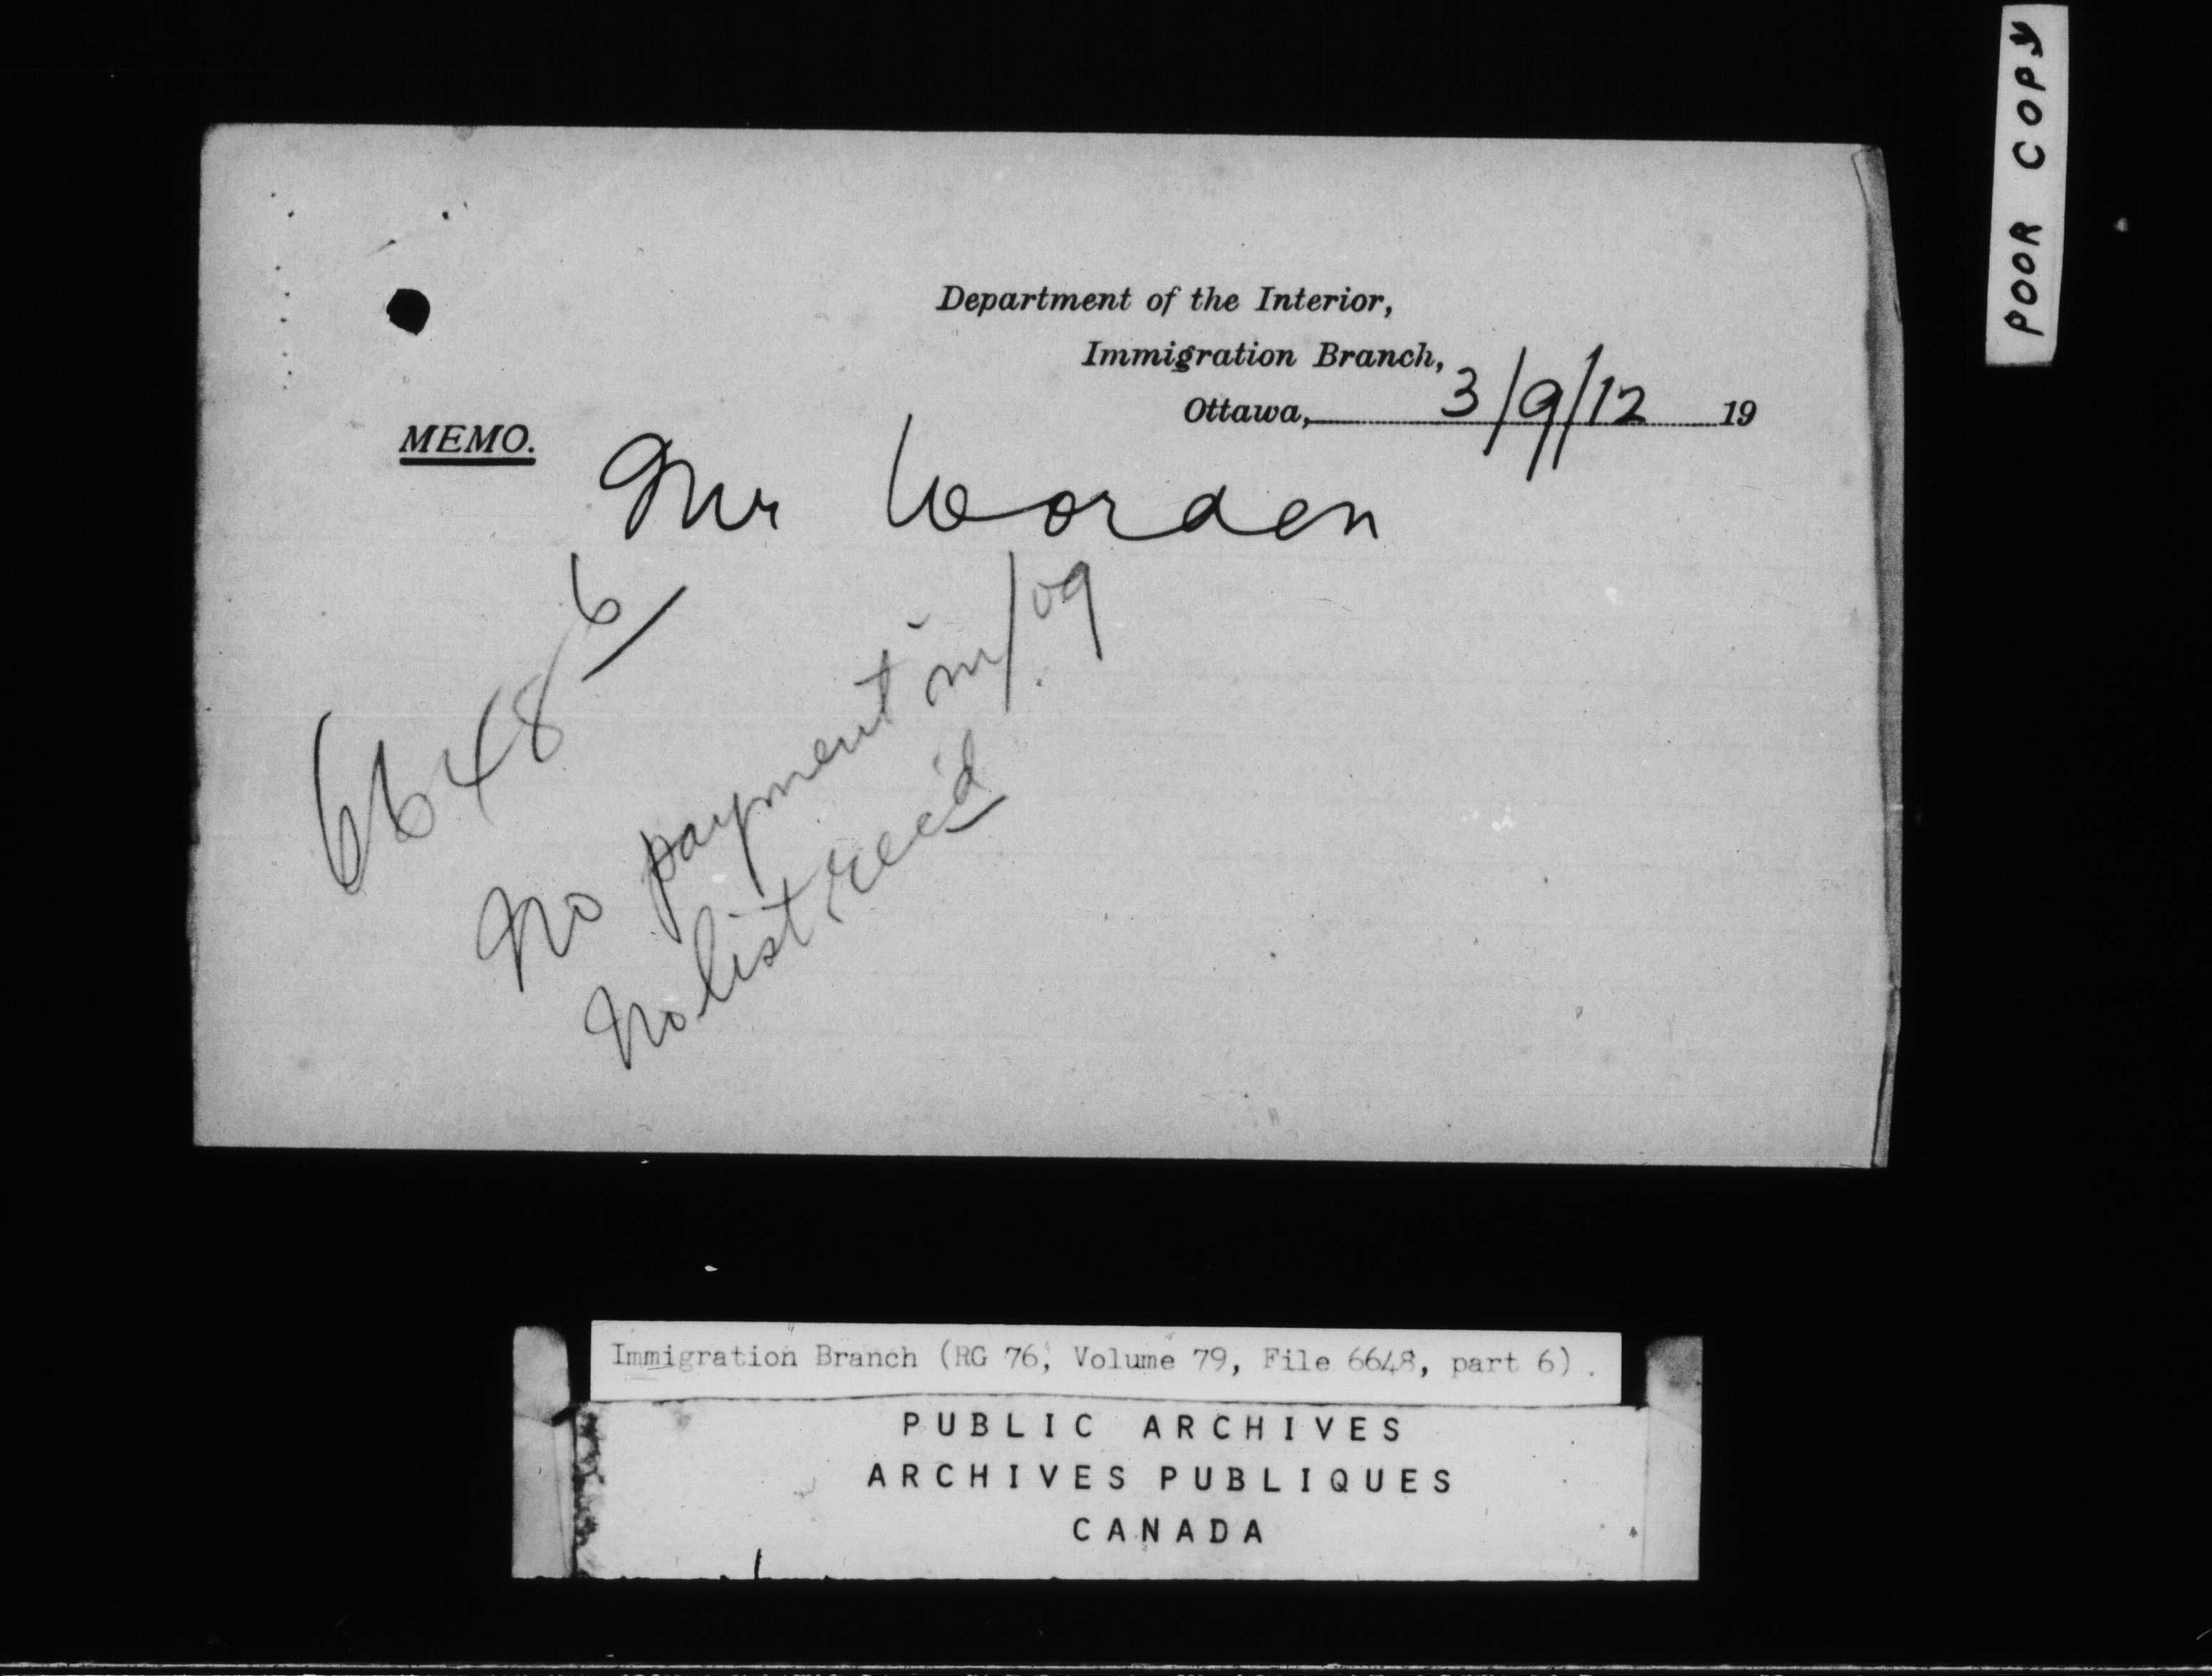 POOR COPY
Department of the Interior,
Immigration Branch,
Ottawa, 3/9/12 19
MEMO.
Mr Worden
6648 6
No payment in/09
No list rec'd
Immigration Branch (RG 76, Volume 79, File 6648, part 6).
PUBLIC ARCHIVES
ARCHIVES PUBLIQUES
CANADA